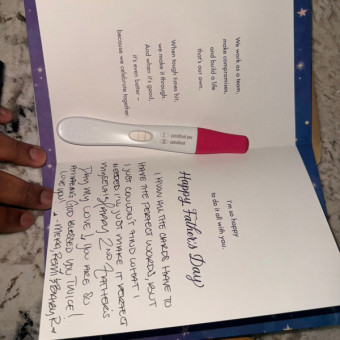 We work as a team,
make compromises,
and build a life
that's our own.
When tough times hit,
we make it through.
And when it's good,
it's even better –
because we celebrate together.
I'm so happy
to do it all with you.
Happy Father's Day
I KNOW ALL THE CARDS HAVE TO
HAVE THE PERFECT WORDS, BUT
I JUST COULDN'T FIND WHAT I
NEEDED JUST MAKE IT PERFECT
HAPPY 2ND FATHER'S
DAY MY LOVE, YOU ARE SO
AMAZING GOD BLESSED YOU TWICE!
LOVE YOU!